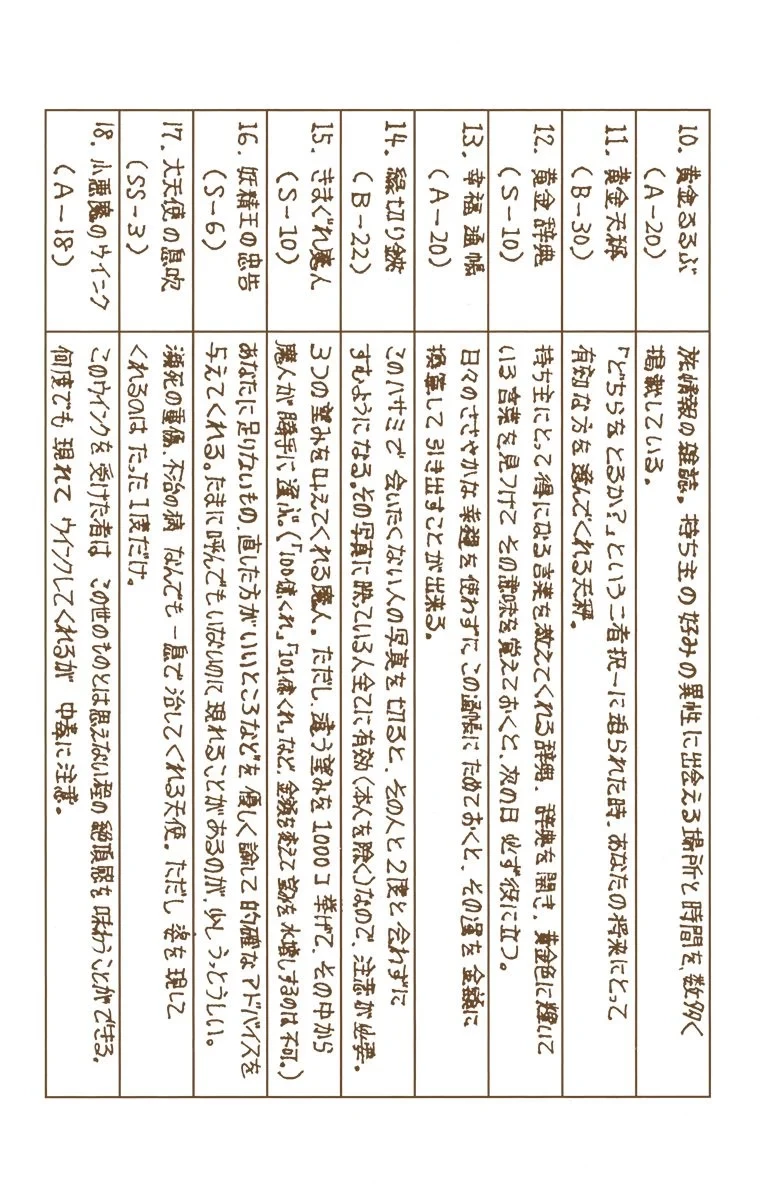 10. 黄金るるぶ
(A-20)
旅情報の雑誌。持ち主の好みの異性に出会える場所と時間を、数多く
掲載している。
11. 黄金天秤
(B-30)
「どちらをとるか？」という二者択一に迫られた時、あなたの将来にとって
有効な方を選んでくれる天秤。
12. 黄金辞典
(S-10)
持ち主にとって得になる言葉を教えてくれる辞典。辞典を開き、黄金色に輝いて
いる言葉を見つけて その意味を覚えておくと、次の日 必ず役に立つ。
13. 幸福通帳
(A-20)
日々のささやかな幸福を使わずに この通帳に ためておくと、その運を 金額に
換算して 引き出すことが出来る。
14. 縁切り鋏
(B-22)
このハサミで 会いたくない人の写真を 切ると、その人と 2度と 会わずに
すむようになる。その写真に映っている人全てに有効(本人を除く)なので、注意が必要。
15. きまぐれ魔人
(S-10)
3つの望みを叶えてくれる魔人。ただし、違う望みを 1000コ 挙げて、その中から
魔人が 勝手に 選ぶ。(「100億くれ」「101億くれ」など、金額を変えて 望みを 水増しするのは 不可。)
16. 妖精王の忠告
(S-6)
あなたに足りないもの、直した方がいいところなどを 優しく 諭して 的確な アドバイスを
与えてくれる。たまに呼んでもいないのに 現れることがあるのが、少し うっとうしい。
17. 大天使の息吹
(SS-3)
瀕死の重傷、不治の病 なんでも 一息で 治してくれる天使。ただし 姿を 現して
くれるのは たった 1度だけ。
18. 小悪魔のウインク
(A-18)
このウインクを 受けた者は この世のものとは思えない程の 絶頂感を 味わうことができる。
何度でも 現れて ウインクしてくれるが 中毒に注意。